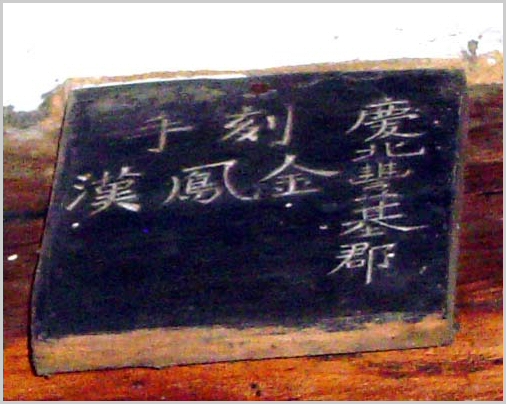 慶北豐基郡
刻手
金鳳漢